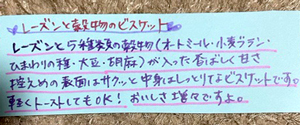 レーズンと穀物のビスケット
レーズンと5種類の穀物(オートミール・小麦ブラン・
ひまわりの種・大豆・胡麻)が入った香ばしく甘さ
控えめの表面はサクッと中身はしっとりなビスケットです。
軽くトーストしてもOK！おいしさ増々ですよ。